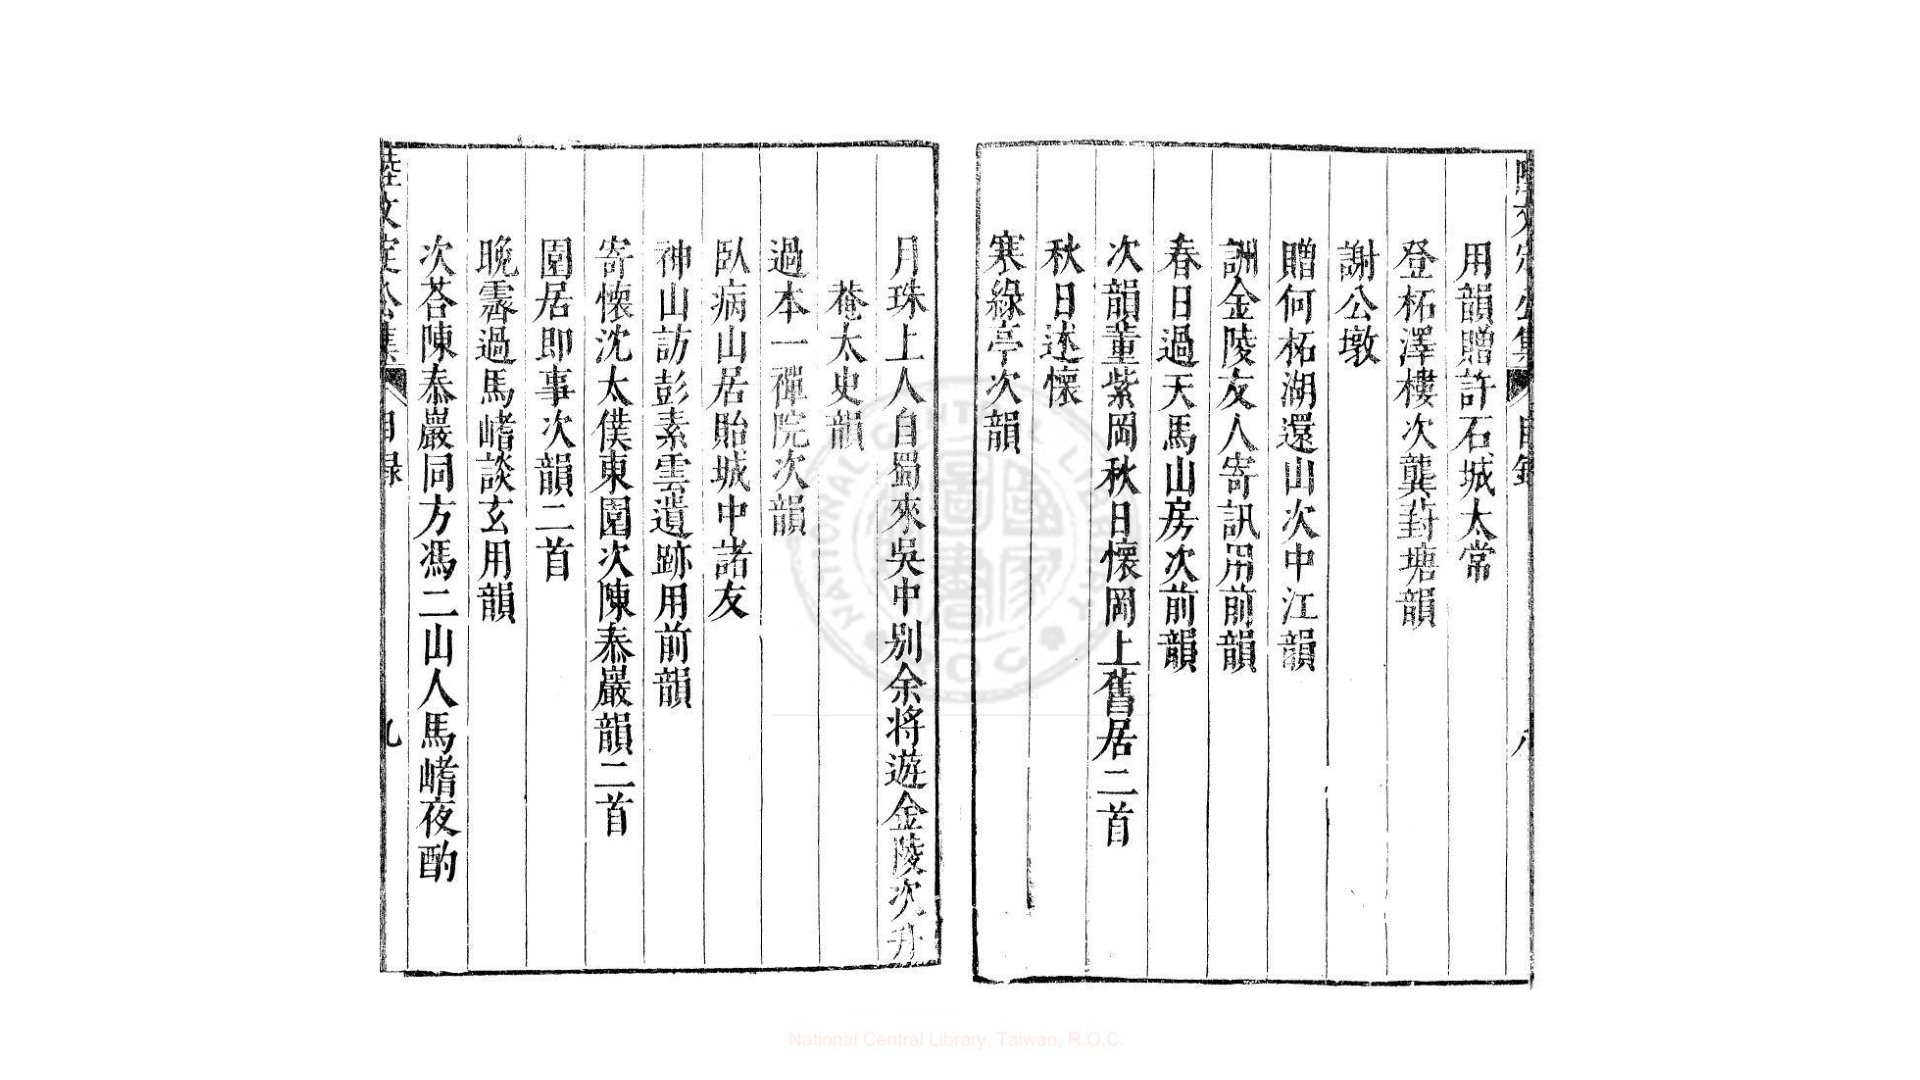 陸文定公集 目錄 八
用韻贈許石城太常
登柘澤樓次龔葑塘韻
謝公墩
贈何柘湖還山次中江韻
詶金陵友人寄訊用前韻
春日過天馬山房次前韻
次韻董紫岡秋日懷岡上舊居二首
秋日述懷
寒綠亭次韻
月珠上人自蜀來吳中別余将遊金陵次升
菴太史韻
過本一禪院次韻
臥病山居貽城中諸友
神山訪彭素雲遺跡用前韻
寄懷沈太僕東園次陳㤗巖韻二首
園居即事次韻二首
晚霽過馬嵴談玄用韻
次荅陳㤗巖同方馮二山人馬嵴夜酌
陸文定公集 目錄 九
NATIONAL CENTRAL LIBRARY
R.O.C.
國家圖書館
National Central Library, Taiwan, R.O.C.